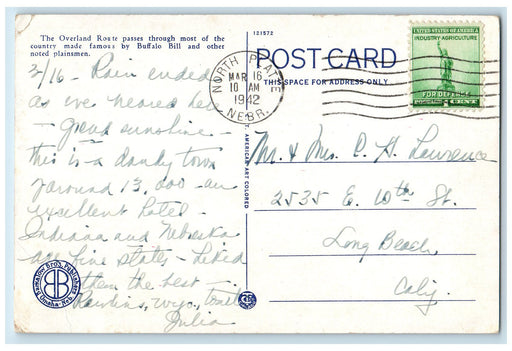 The Overland Route passes through most of the
country made famous by Buffalo Bill and other
noted plainsmen.
3/16 - Rain ended
as we neared here
- grand sunshine -
this is a dandy town
around 13,000 - an
excellent hotel -
Indiana and Nebraska
are fine states - Liked
them the best -
Rawlins, Wyo., next
Julia
121572
POST CARD
THIS SPACE FOR ADDRESS ONLY
NORTH PLATTE
MAR 16
10 AM
1942
NEBR.
UNITED STATES OF AMERICA
INDUSTRY AGRICULTURE
FOR DEFENSE
CENT
AMERICAN ART COLORED
Mr. & Mrs. C. H. Lawrence
2535 E. 10th St.
Long Beach,
Calif.
Bros. Publishers
Omaha, Neb.